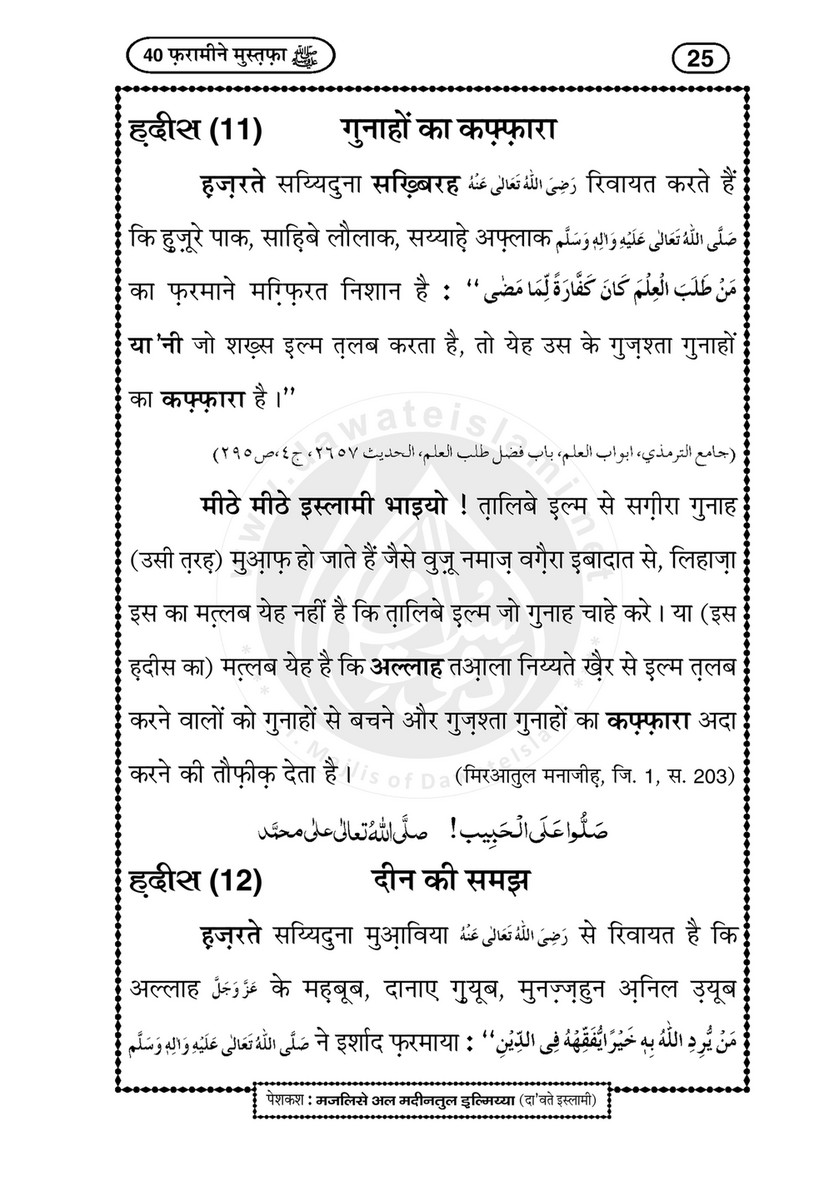 40 फ़रामीने मुस्त़फ़ा ﷺ
25
ह़दीस (11) गुनाहों का कफ़्फ़ारा
ह़ज़रते सय्यिदुना सख़्बिरह رَضِیَ اللّٰہُ تَعَالٰی عَنْہُ रिवायत करते हैं
कि हुज़ूरे पाक, साह़िबे लौलाक, सय्याह़े अफ़्लाक صَلَّی اللّٰہُ تَعَالٰی عَلَیْہِ وَاٰلِہٖ وَسَلَّم
का फ़रमाने मग़्फ़िरत निशान है : ‘‘ مَنْ طَلَبَ الْعِلْمَ کَانَ کَفَّارَۃً لِّمَا مَضٰی
या’नी जो शख़्स इ़ल्म त़लब करता है, तो येह उस के गुज़श्ता गुनाहों
का कफ़्फ़ारा है ।’’
(جامع الترمذي، ابواب العلم، باب فضل طلب العلم، الحديث ٢٦٥٧، ج٤، ص٢٩٥)
मीठे मीठे इस्लामी भाइयो ! त़ालिबे इ़ल्म से सग़ीरा गुनाह
(उसी त़रह़) मुआ़फ़ हो जाते हैं जैसे वुज़ू नमाज़ वग़ैरा इ़बादात से, लिहाज़ा
इस का मत़लब येह नहीं है कि त़ालिबे इ़ल्म जो गुनाह चाहे करे । या (इस
ह़दीस का) मत़लब येह है कि अल्लाह तआ़ला निय्यते ख़ैर से इ़ल्म त़लब
करने वालों को गुनाहों से बचने और गुज़श्ता गुनाहों का कफ़्फ़ारा अदा
करने की तौफ़ीक़ देता है । (मिरआतुल मनाजीह़, जि. 1, स. 203)
صَلُّوا عَلَی الْحَبِیب! صلَّی اللّٰہُ تعالٰی علٰی محمَّد
ह़दीस (12) दीन की समझ
ह़ज़रते सय्यिदुना मुआ़विया رَضِیَ اللّٰہُ تَعَالٰی عَنْہُ से रिवायत है कि
अल्लाह عَزَّ وَجَلَّ के मह़बूब, दानाए ग़ुयूब, मुनज़्ज़हुन अ़निल उ़यूब
صَلَّی اللّٰہُ تَعَالٰی عَلَیْہِ وَاٰلِہٖ وَسَلَّم ने इर्शाद फ़रमाया : ‘‘ مَنْ یُّرِدِ اللّٰہُ بِہٖ خَیْرًا یُّفَقِّھْہُ فِی الدِّیْنِ
पेशकश : मजलिसे अल मदीनतुल इ़ल्मिय्या (दा’वते इस्लामी)